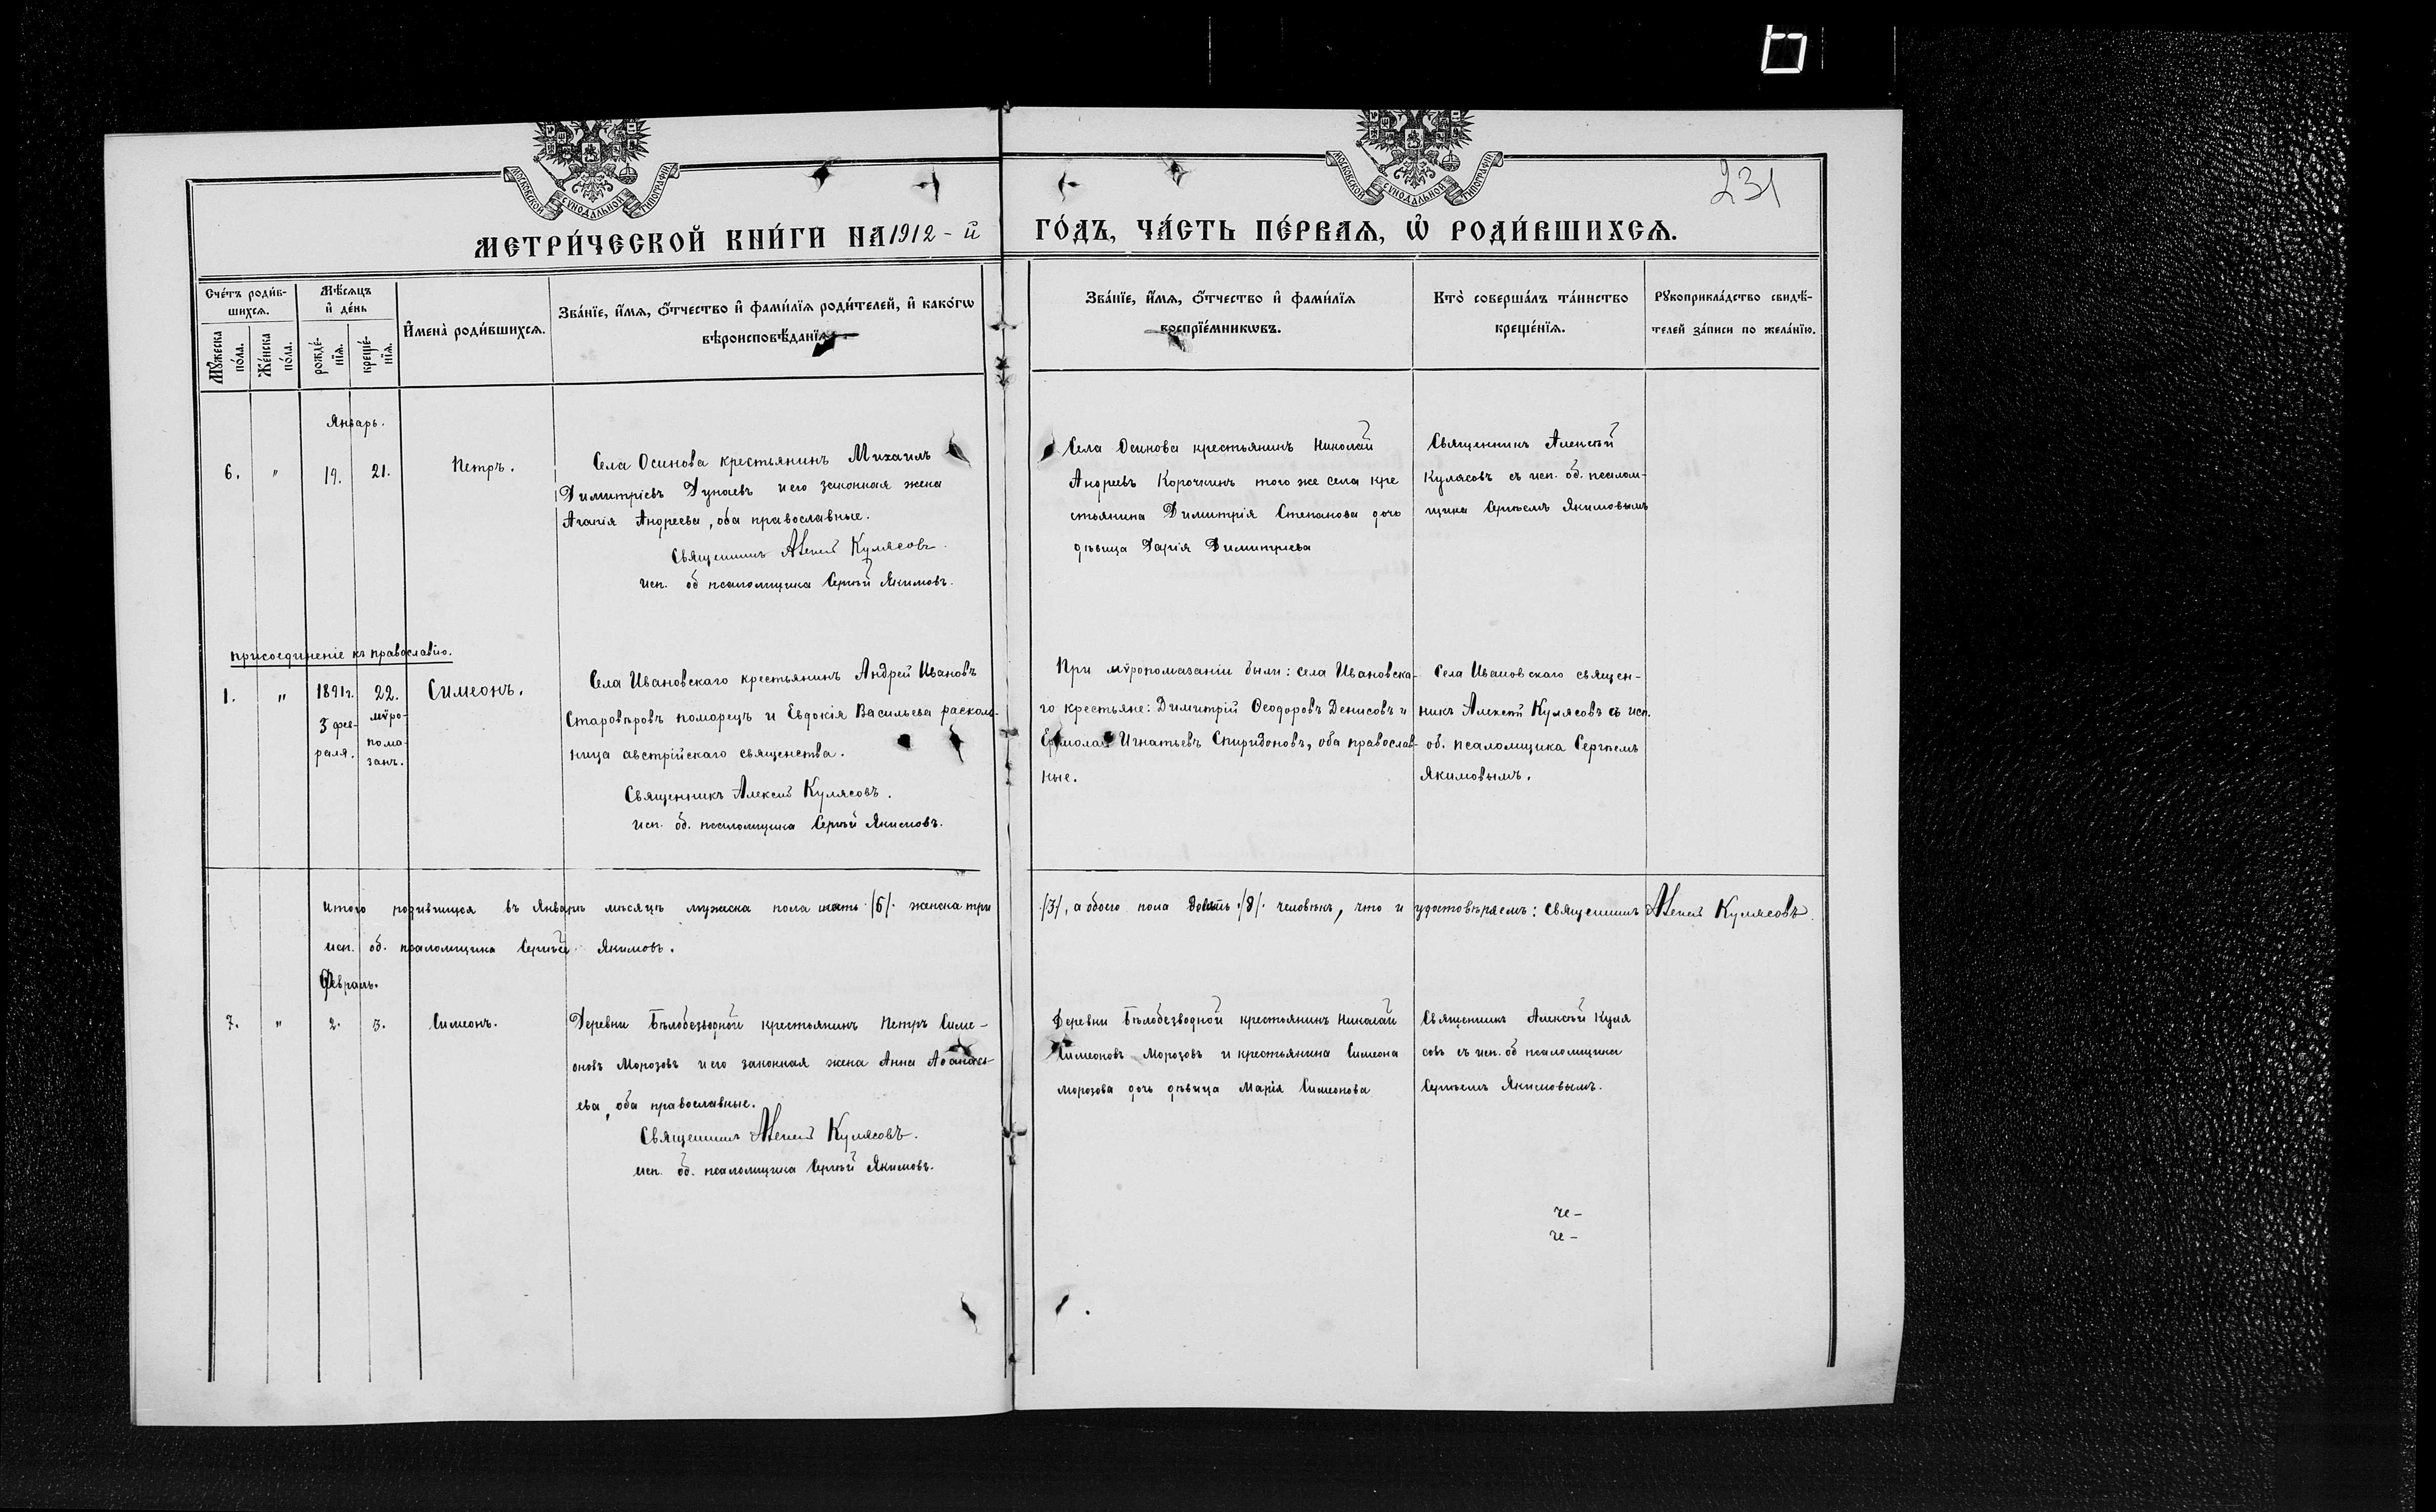 МОСКОВСКОЙ СУНОДАЛЬНОЙ ТИПОГРАФІИ
МОСКОВСКОЙ СУНОДАЛЬНОЙ ТИПОГРАФІИ
231
МЕТРИ́ЧЕСКОЙ КНИ́ГИ НА 1912-й ГО́ДЪ, ЧА́СТЬ ПЕ́РВАЯ, Ѡ РОДИ́ВШИХСЯ.
Сче́тъ роди́в-
шихся.
Мꙋ́жеска по́ла.
Же́нска по́ла.
Мѣ́сяцъ и҆ де́нь
рожде́-
нїя.
креще́-
нїя.
И҆мена̀ роди́вшихся.
Зва́нїе, и҆́мя, ѻ҆́тчество и҆ фами́лїя роди́телей, и҆ како́гѡ
вѣроисповѣ́данїя.
Зва́нїе, и҆́мя, ѻ҆́тчество и҆ фами́лїя
воспрїе́мникѡвъ.
Кто̀ соверша́лъ та́инство
креще́нїя.
Рꙋкоприкла́дство свидѣ́-
телей за́писи по жела́нїю.
Январь.
6. " 19. 21. Петръ.
Села Осинова крестьянинъ Михаилъ
Димитріевъ Дунаевъ и его законная жена
Агапія Андреева, оба православные.
Священникъ Алексѣй Кулясовъ.
исп. об псаломщика Сергѣй Якимовъ.
Села Осинова крестьянинъ Николай
Андреевъ Корочкинъ того же села кре
стьянина Димитрія Степанова дочь
дѣвица Дарія Димитріева
Священникъ Алексѣй
Кулясовъ съ исп. об. псалом-
щика Сергѣемъ Якимовымъ
присоединеніе къ православію.
1. " 1891 г. 22. Симеонъ.
3 фев-
раля.
мѵро-
пома-
занъ.
Села Ивановскаго крестьянинъ Андрей Ивановъ
Старовѣровъ поморецъ и Евдокія Васильева расколь-
ница австрійскаго священства.
Священникъ Алексѣй Кулясовъ.
исп. об. псаломщика Сергѣй Якимовъ.
При мѵропомазаніи были: села Ивановска-
го крестьяне: Димитрій Ѳеодоровъ Денисовъ и
Ермолай Игнатьевъ Спиридоновъ, оба православ-
ные.
Села Ивановскаго священ-
никъ Алексѣй Кулясовъ съ исп.
об. псаломщика Сергѣемъ
Якимовымъ.
Итого родившихся въ Январѣ мѣсяцѣ мужеска пола /6/. женска три /3/, а обоего пола /8/. человѣкъ, что и удостовѣряемъ: Священникъ Алексѣй Кулясовъ.
исп. об. псаломщика Сергѣй Якимовъ.
Февраль.
7. " 2. 3. Симеонъ.
Деревни Бѣлобезводной крестьянинъ Петръ Симе-
оновъ Морозовъ и его законная жена Анна Аѳанась-
ева, оба православные.
Священникъ Алексѣй Кулясовъ.
исп. об. псаломщика Сергѣй Якимовъ.
Деревни Бѣлобезводной крестьянинъ Николай
Симеоновъ Морозовъ и крестьянина Симеона
Морозова дочь дѣвица Марія Симеонова
Священникъ Алексѣй Куля
совъ съ исп. об псаломщика
Сергѣемъ Якимовымъ.
че-
че-